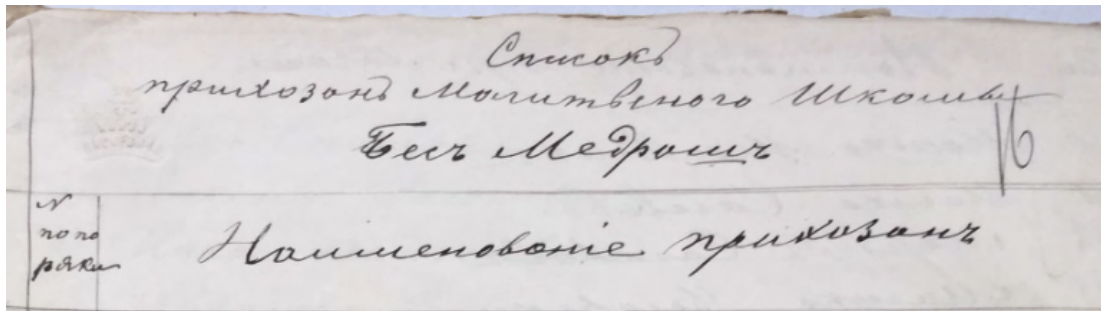 Списокъ
прихозанъ Молитвеного Школы
Бесъ Медрошъ
N
по по
рядки
Наименованіе прихозанъ